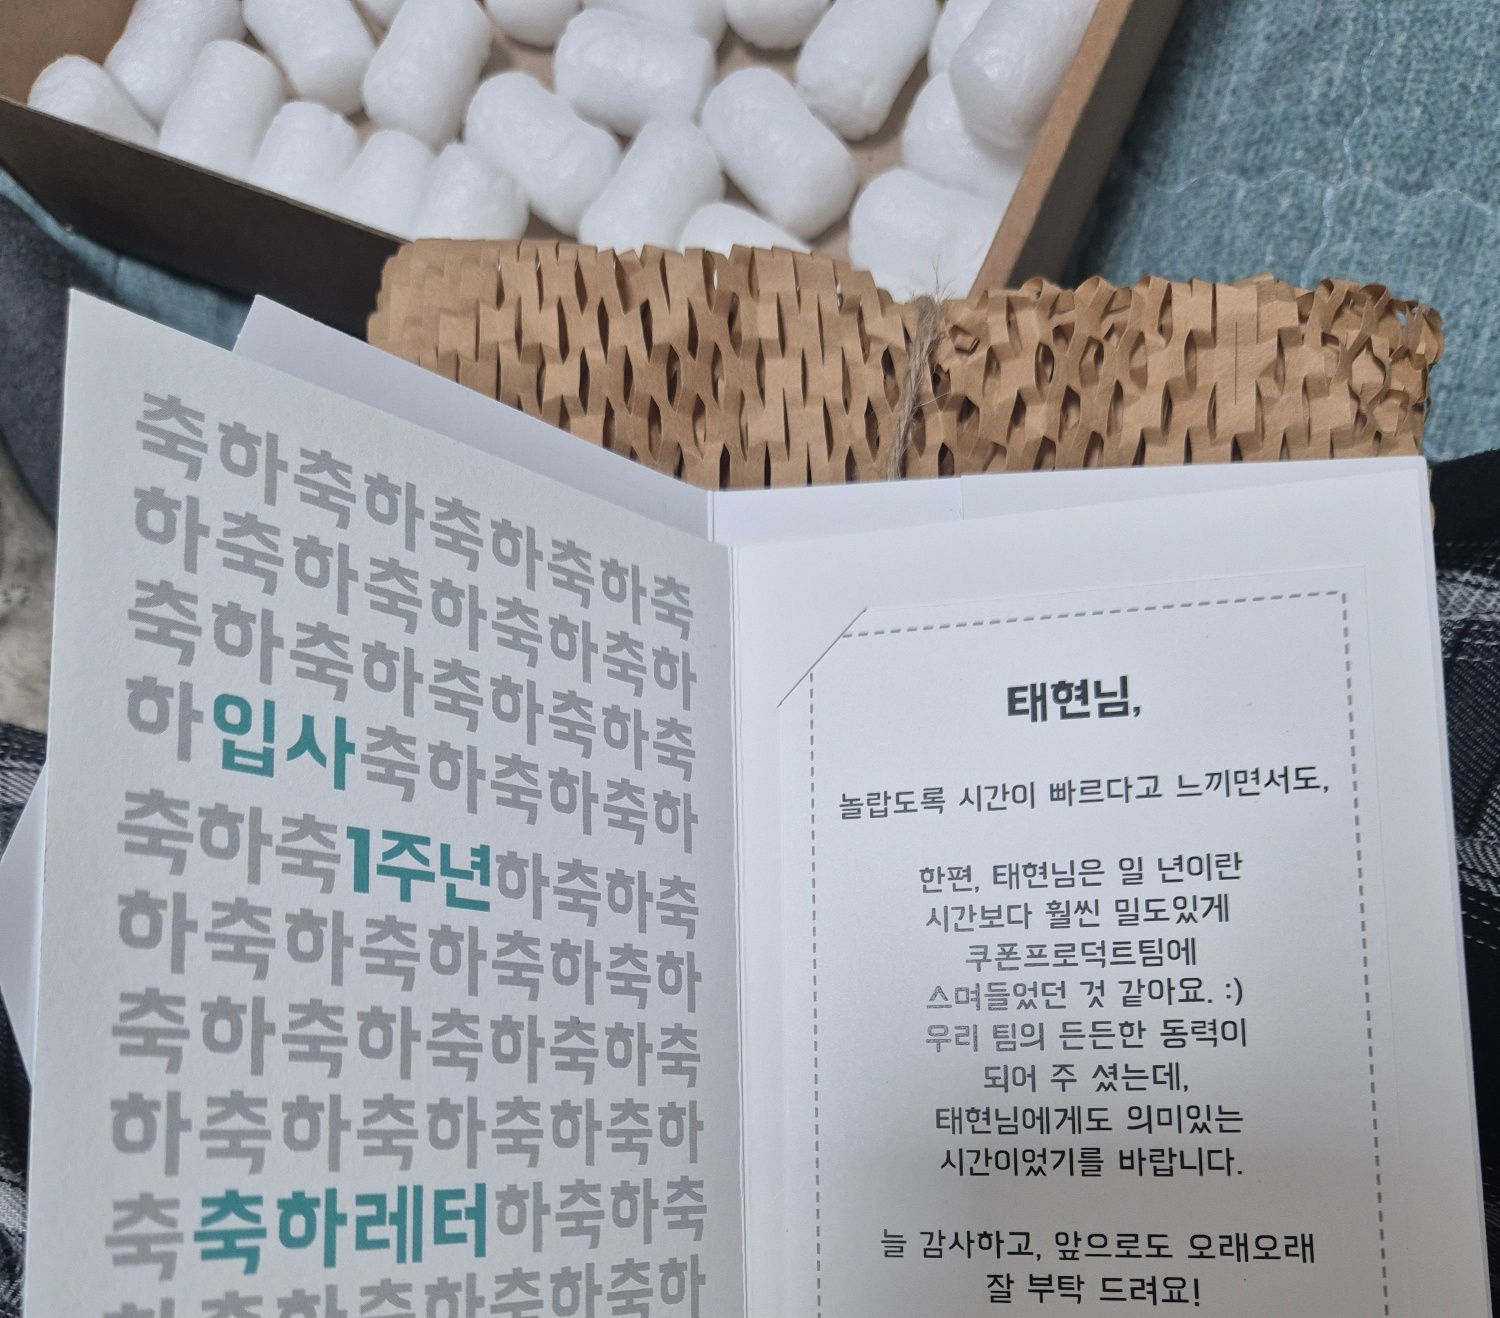 축하축하축하축하축
하축하축하축하축하
축하축하축하축하축
하입사축하축하축하
축하축1주년하축하축
하축하축하축하축하
축하축하축하축하축
하축하축하축하축하
축축하레터하축하축
하축하축하축하축하
태현님,
놀랍도록 시간이 빠르다고 느끼면서도,
한편, 태현님은 일 년이란
시간보다 훨씬 밀도있게
쿠폰프로덕트팀에
스며들었던 것 같아요. :)
우리 팀의 든든한 동력이
되어 주 셨는데,
태현님에게도 의미있는
시간이었기를 바랍니다.
늘 감사하고, 앞으로도 오래오래
잘 부탁 드려요!